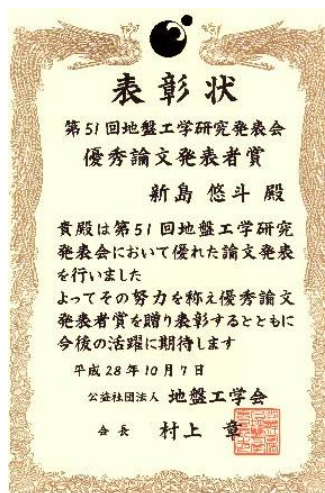 表彰状
第51回地盤工学研究発表会
優秀論文発表者賞
新島 悠斗 殿
貴殿は第51回地盤工学研究
発表会において優れた論文発表
を行いました
よってその努力を称え優秀論文
発表者賞を贈り表彰するとともに
今後の活躍に期待します
平成28年10月7日
公益社団法人 地盤工学会
会長 村上 章